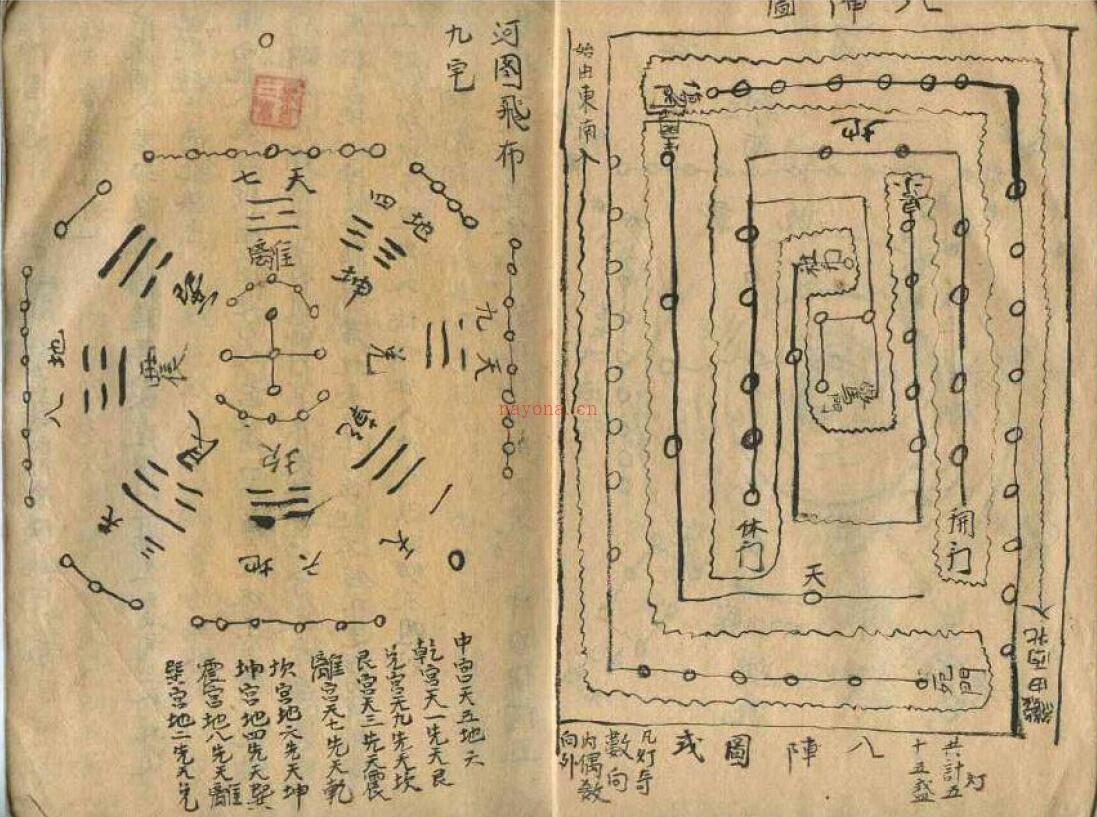 河图飛布
九宅
天七
離
地四
坤
九天
兌
天一
乾
坎
地六
艮
天三
震
地八
巽
中宫天五地六
乾宫天一先天艮
兌宫天九先天坎
艮宫天三先天震
離宫天七先天乾
坎宫地六先天坤
坤宫地四先天巽
震宫地八先天離
巽宫地二先天兌
nayona.cn
八陣圖
始由東南入
地
杜门
休门
開门
天
死門
八陣圖式
凡灯奇
數向
内偶数
向外
共計五
十五盏
灯